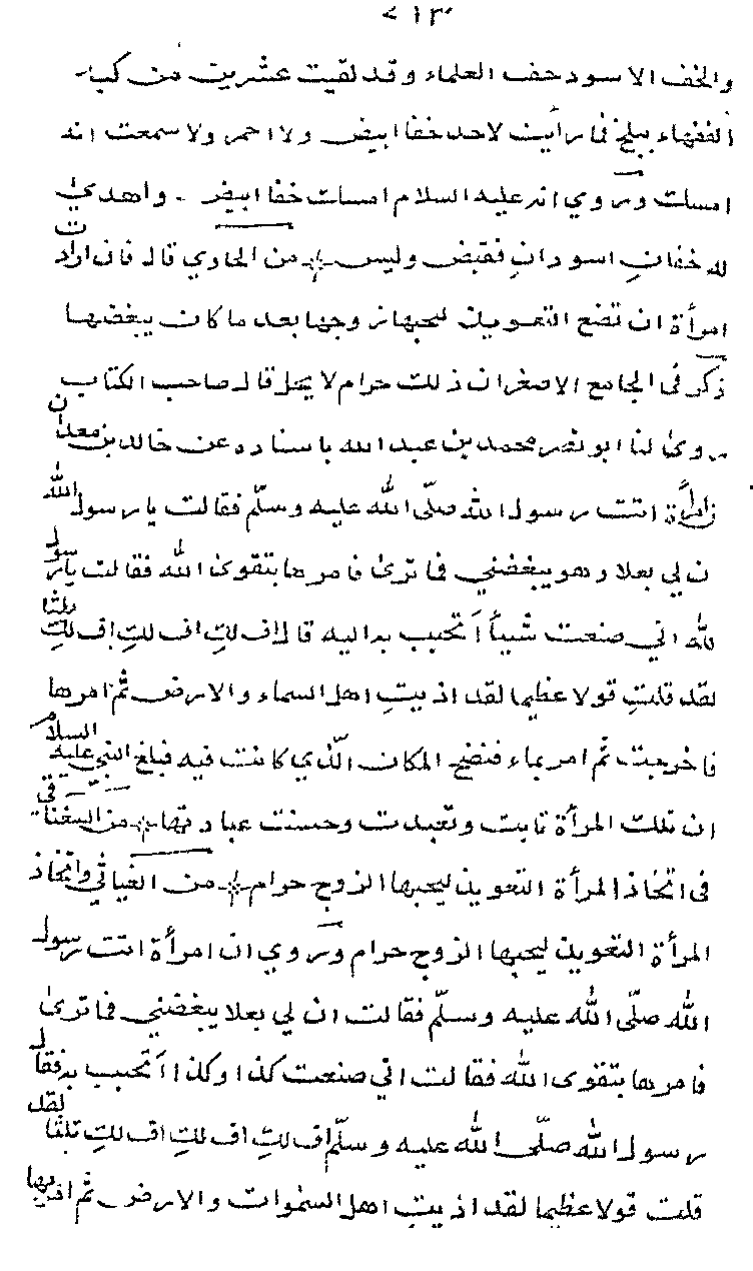 ٧١٣
والخف الاسود خف العلماء وقد لقيت عشرين من كبار
الفقهاء ببلخ فما رأيت لاحد خفا ابيض ولا احمر ولا سمعت انه
امسك وروي انه عليه السلام امسك خفا ابيض . واهدي
له خفان اسودان فقبض وليس من الحاوي قال فان ارادت
امرأة ان تضع التعويذ ليحبها زوجها بعد ما كان يبغضها
ذكر في الجامع الاصغر ان ذلك حرام لا يحل قال صاحب الكتاب
روى لنا ابو نصر محمد بن عبد الله باسناده عن خالد بن معدان
امرأة اتت رسول الله صلّى الله عليه وسلّم فقالت يا رسول الله
ن لي بعلا وهو يبغضني فما ترى فامرها بتقوى الله فقالت يا رسول
لله اني صنعت شيأ أتحبب به اليه قال اف لكِ اف لكِ اف لكِ ثلثا
لقد قلتِ قولا عظيما لقد اذيتِ اهل السماء والارض ثمّ امرها
فاخرجت ثم امر بماء فنضح المكان الّذي كانت فيه فبلغ النبي عليه السلام
ان تلك المرأة تابت وتعبدت وحسنت عبادتها من السغناقي
في اتخاذ المرأة التعويذ ليحبها الزوج حرام من الغياثي واتخاذ
المرأة التعويذ ليحبها الزوج حرام وروي ان امرأة اتت رسول
الله صلّى الله عليه وسلّم فقالت ان لي بعلا يبغضني فما ترى
فامرها بتقوى الله فقالت اني صنعت كذا وكذا أتحبب به فقال
رسول الله صلّى الله عليه وسلّم اف لكِ اف لكِ اف لكِ ثلثا لقد
قلت قولا عظيما لقد اذيتِ اهل السموات والارض ثمّ امر بها